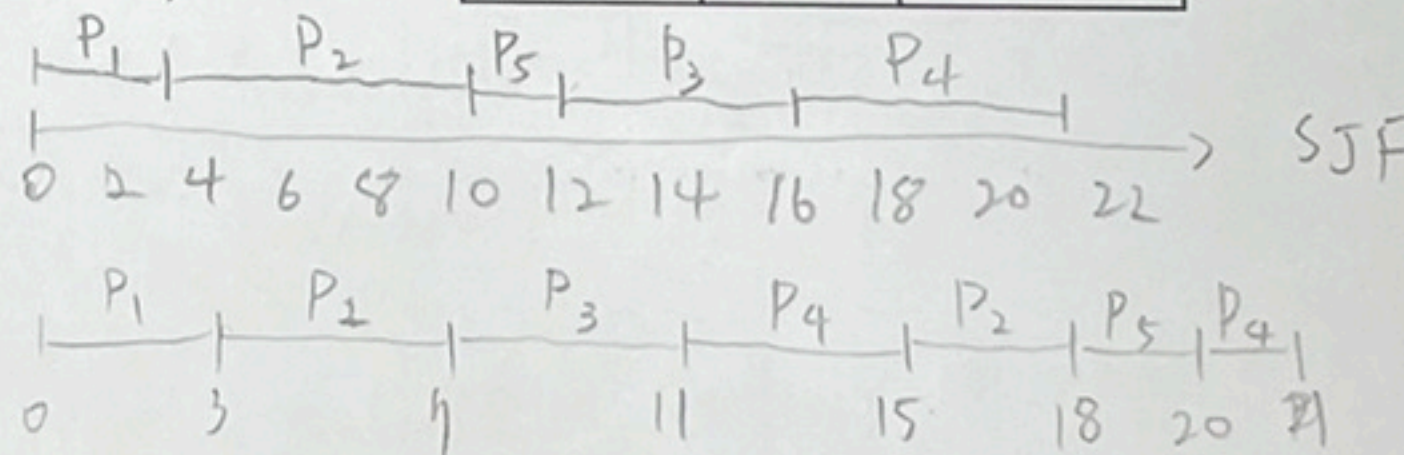 P1 P2 P5 P3 P4
0 2 4 6 8 10 12 14 16 18 20 22 SJF
P1 P2 P3 P4 P2 P5 P4
0 3 7 11 15 18 20 21